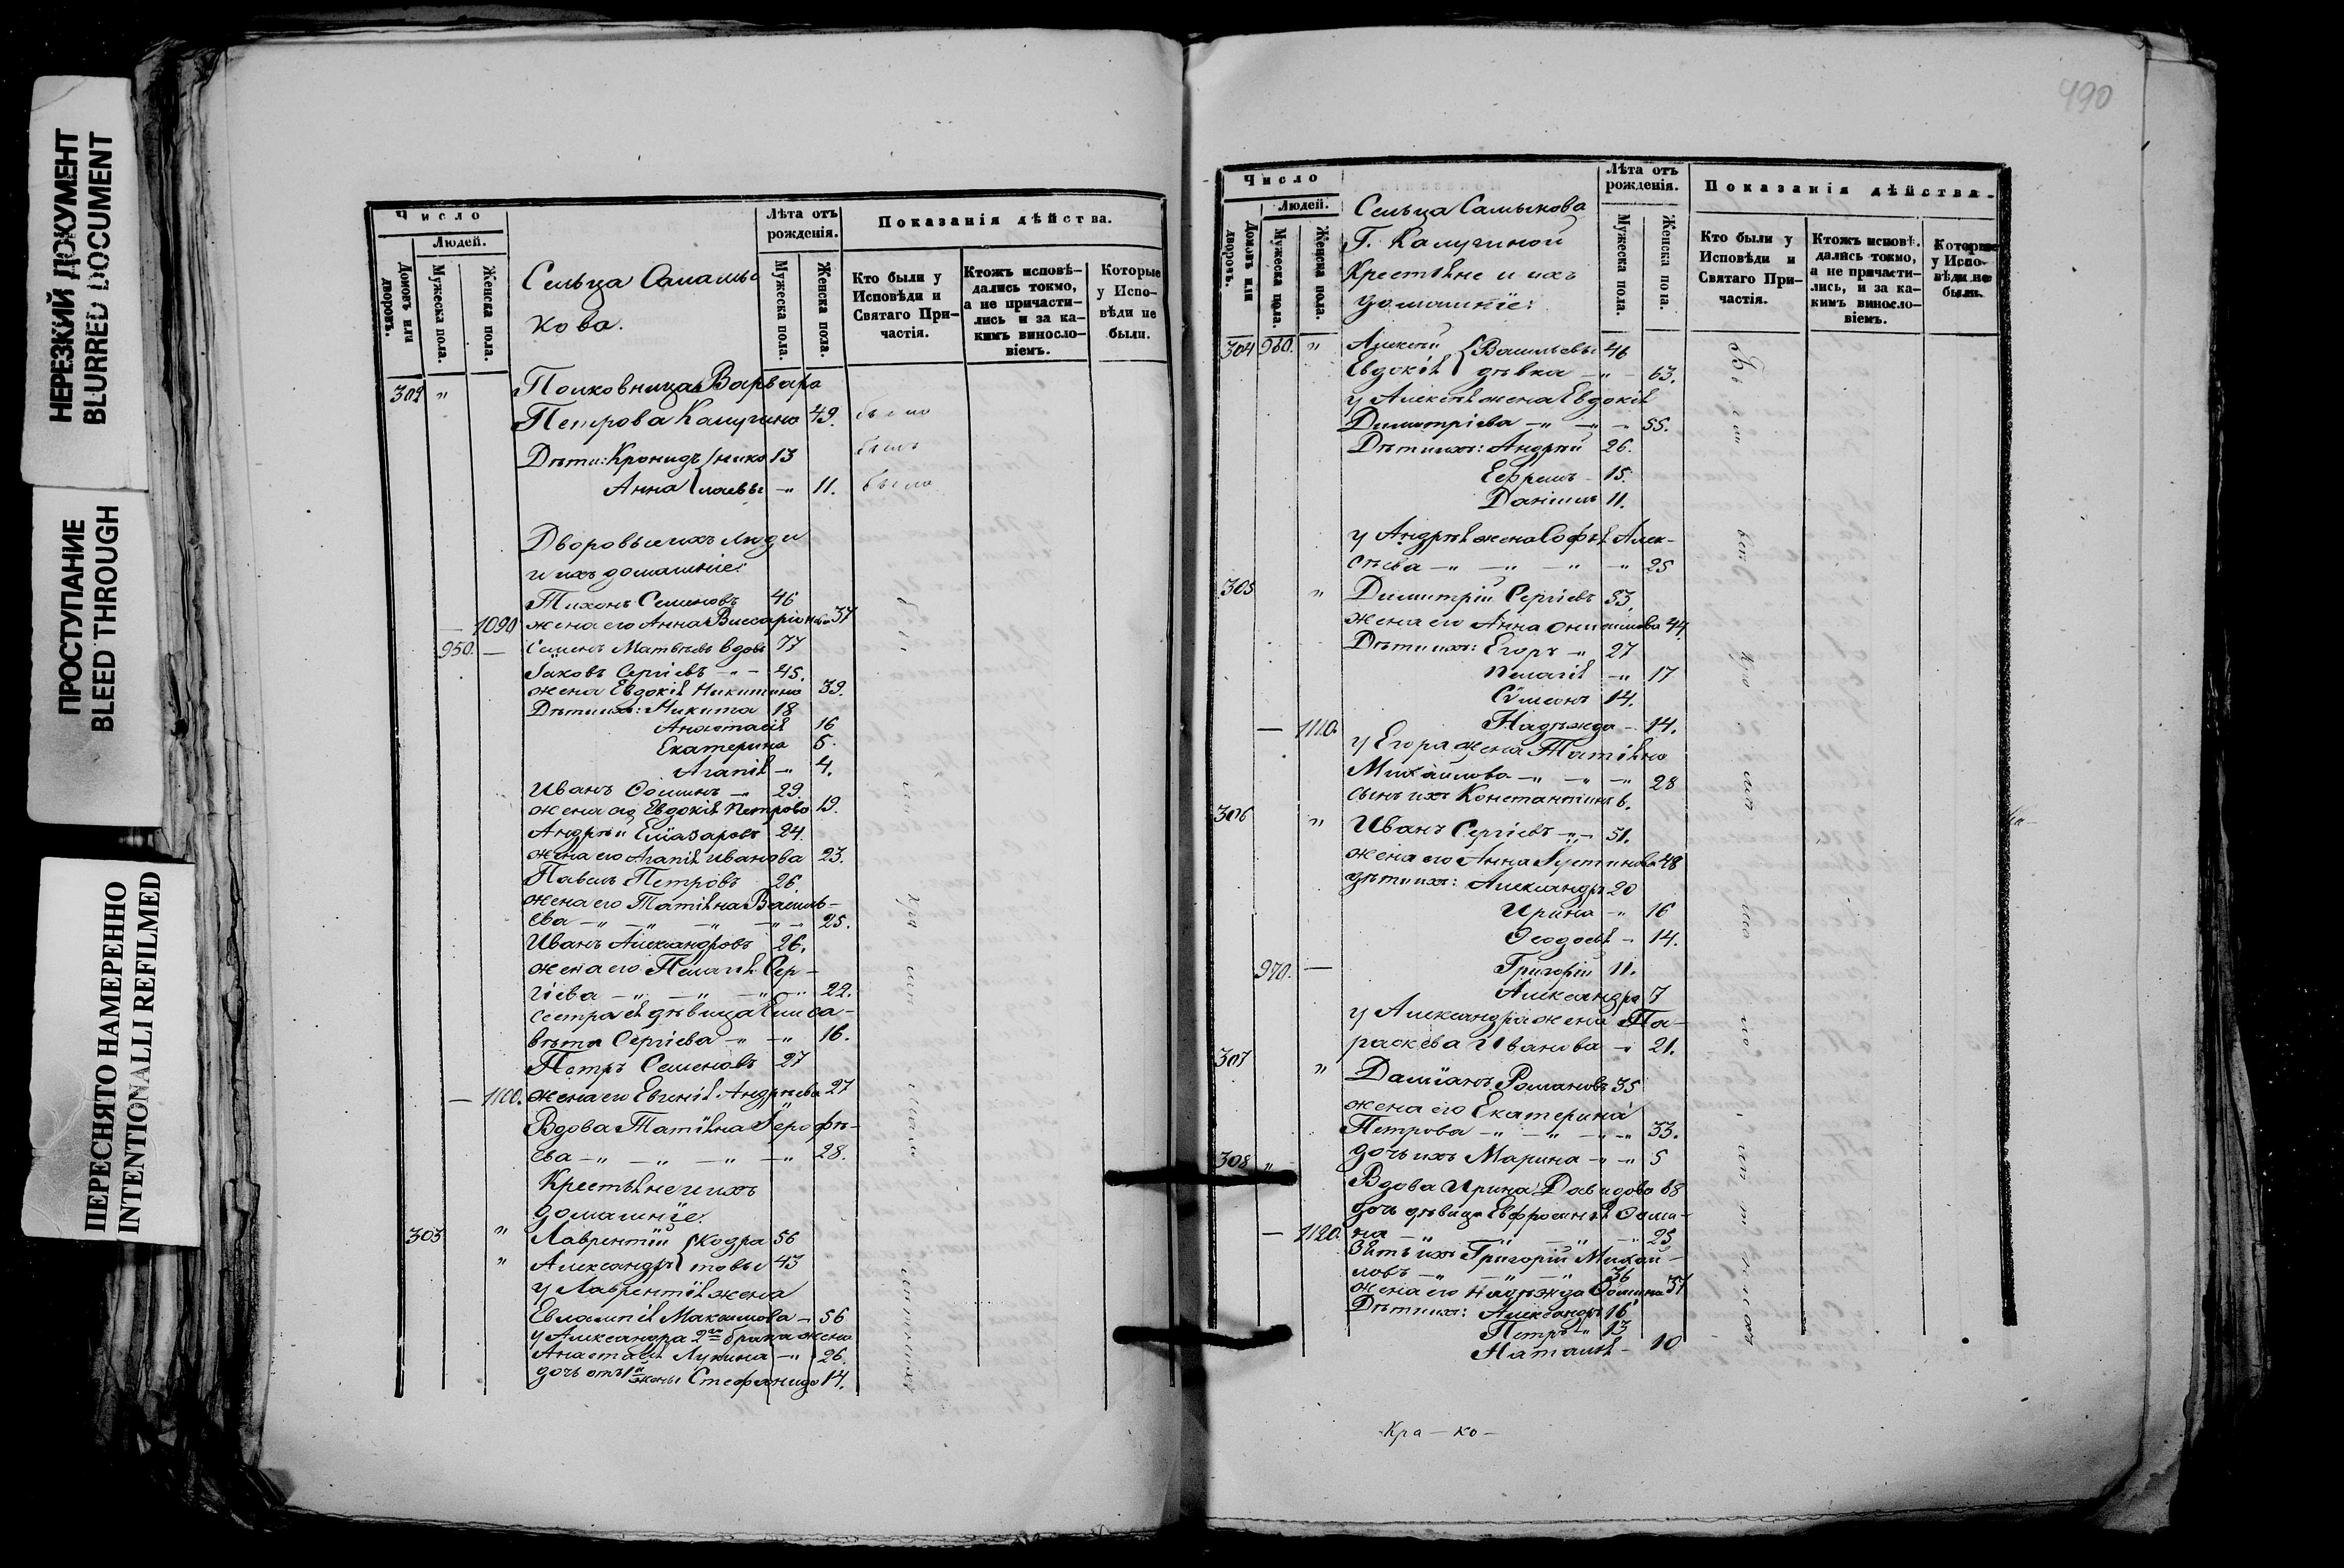 НЕРЕЗКИЙ ДОКУМЕНТ
BLURRED DOCUMENT
ПРОСТУПАНИЕ
BLEED THROUGH
ПЕРЕСНЯТО НАМЕРЕННО
INTENTIONALLI REFILMED
Число
Людей.
Домовъ или дворовъ.
Мужеска пола.
Женска пола.
Сельца
кова.
Лѣта отъ рожденія.
Мужеска пола.
Женска пола.
Показанія дѣйства.
Кто были у Исповѣди и Святаго При-частія.
Ктожъ исповѣ-дались токмо, а не причасти-лись и за ка-кимъ винosло-віемъ.
Которые у Испо-вѣди не были.
302 " Полковница Варвара
Петрова Калугина 49. была
Дѣти: Кронидъ Нико 13 былъ
Анна лаевы -"- 11. была
Дворовые ихъ люди
и ихъ домашніе:
Тихонъ Семеновъ 46
— 1090 жена его Анна Виссаріонова 37
950. — Сѵмеонъ Матвѣевъ вдовъ 77
Іаковъ Сергіевъ - - 45.
жена Евдокія Никитина 39.
Дѣти ихъ: Никита 18
Анастасія 16
Екатерина 5.
Агапія -"- 4.
Иванъ Ѳоминъ -"- 29.
жена его Евдокія Петрова 19.
Андрей Елїазаровъ 24.
жена его Агапія Иванова 23.
Павелъ Петровъ 26.
жена его Татіяна Василь-
ева -"- -"- -"- -"- 25.
Иванъ Александровъ 26.
жена его Пелагія Сер-
гіева -"- -"- -"- 22.
сестра ея дѣвица Елиса-
вѣта Сергіева -"- -"- 16.
Петръ Семеновъ 27
— 1100. жена его Евгенія Андреева 27
Вдова Татїяна Іерофѣ-
ева -"- -"- -"- -"- 28.
Крестьяне и ихъ
домашнїе:
303 " Лаврентій Кодра 56
" Александръ товы 43
у Лаврентія жена
Евлампія Максимова - 56
у Александра 2го брака жена
Анастасія Лукина -"- 26.
дочь отъ 1й жены Стефанида 14.
490
Число
Людей.
Домовъ или дворовъ.
Мужеска пола.
Женска пола.
Сельца Салыкова
Г. Калугиной
Крестьяне и ихъ
домашнїе:
Лѣта отъ рожденія.
Мужеска пола.
Женска пола.
Показанія дѣйства.
Кто были у Исповѣди и Святаго При-частія.
Ктожъ исповѣ-дались токмо, а не причасти-лись, и за ка-кимъ винosло-віемъ.
Которые у Испо-вѣди не были.
304 960. " Алексѣй Васильевы 46
Евдокія дѣвка -"- 63.
у Алексѣя жена Евдокія
Димитріева -"- -"- - 55.
Дѣти ихъ: Андрей 26.
Ефремъ - 15.
Даніилъ 11.
у Андрея жена Софья Алек-
сѣева -"- -"- -"- -"- 25
305 " Димитрій Сергіевъ 53.
жена его Анна Онисимова 44.
Дѣти ихъ: Егоръ -"- 27
Пелагія -"- 17
Сѵмеонъ 14.
— 1110. Надежда - 14.
у Егора жена Татіяна
Михаилова -"- -"- -"- 28
сынъ ихъ Константинъ 6.
306 " Иванъ Сергіевъ -"- 51.
жена его Анна Іустинова 48
дѣти ихъ: Александръ 20
Ирина -"- 16
Ѳеодосія - 14.
970. — Григорій 11.
Александра 7
у Александра жена Па-
раскева Иванова -"- 21.
307 " Даміанъ Романовъ 35
жена его Екатерина
Петрова -"- -"- -"- 33.
дочь ихъ Марина -"- -"- 5
308 " Вдова Ирина Давидова 68
дочь дѣвица Евфросинія Ѳоми-
— 1120. на -"- -"- -"- -"- 25
Зять ихъ Григорій Михай-
ловъ -"- -"- -"- 36
жена его Надежда Ѳомина 37
Дѣти ихъ: Александръ 16
Петръ -"- 13
Наталія - 10
Кра - ко -